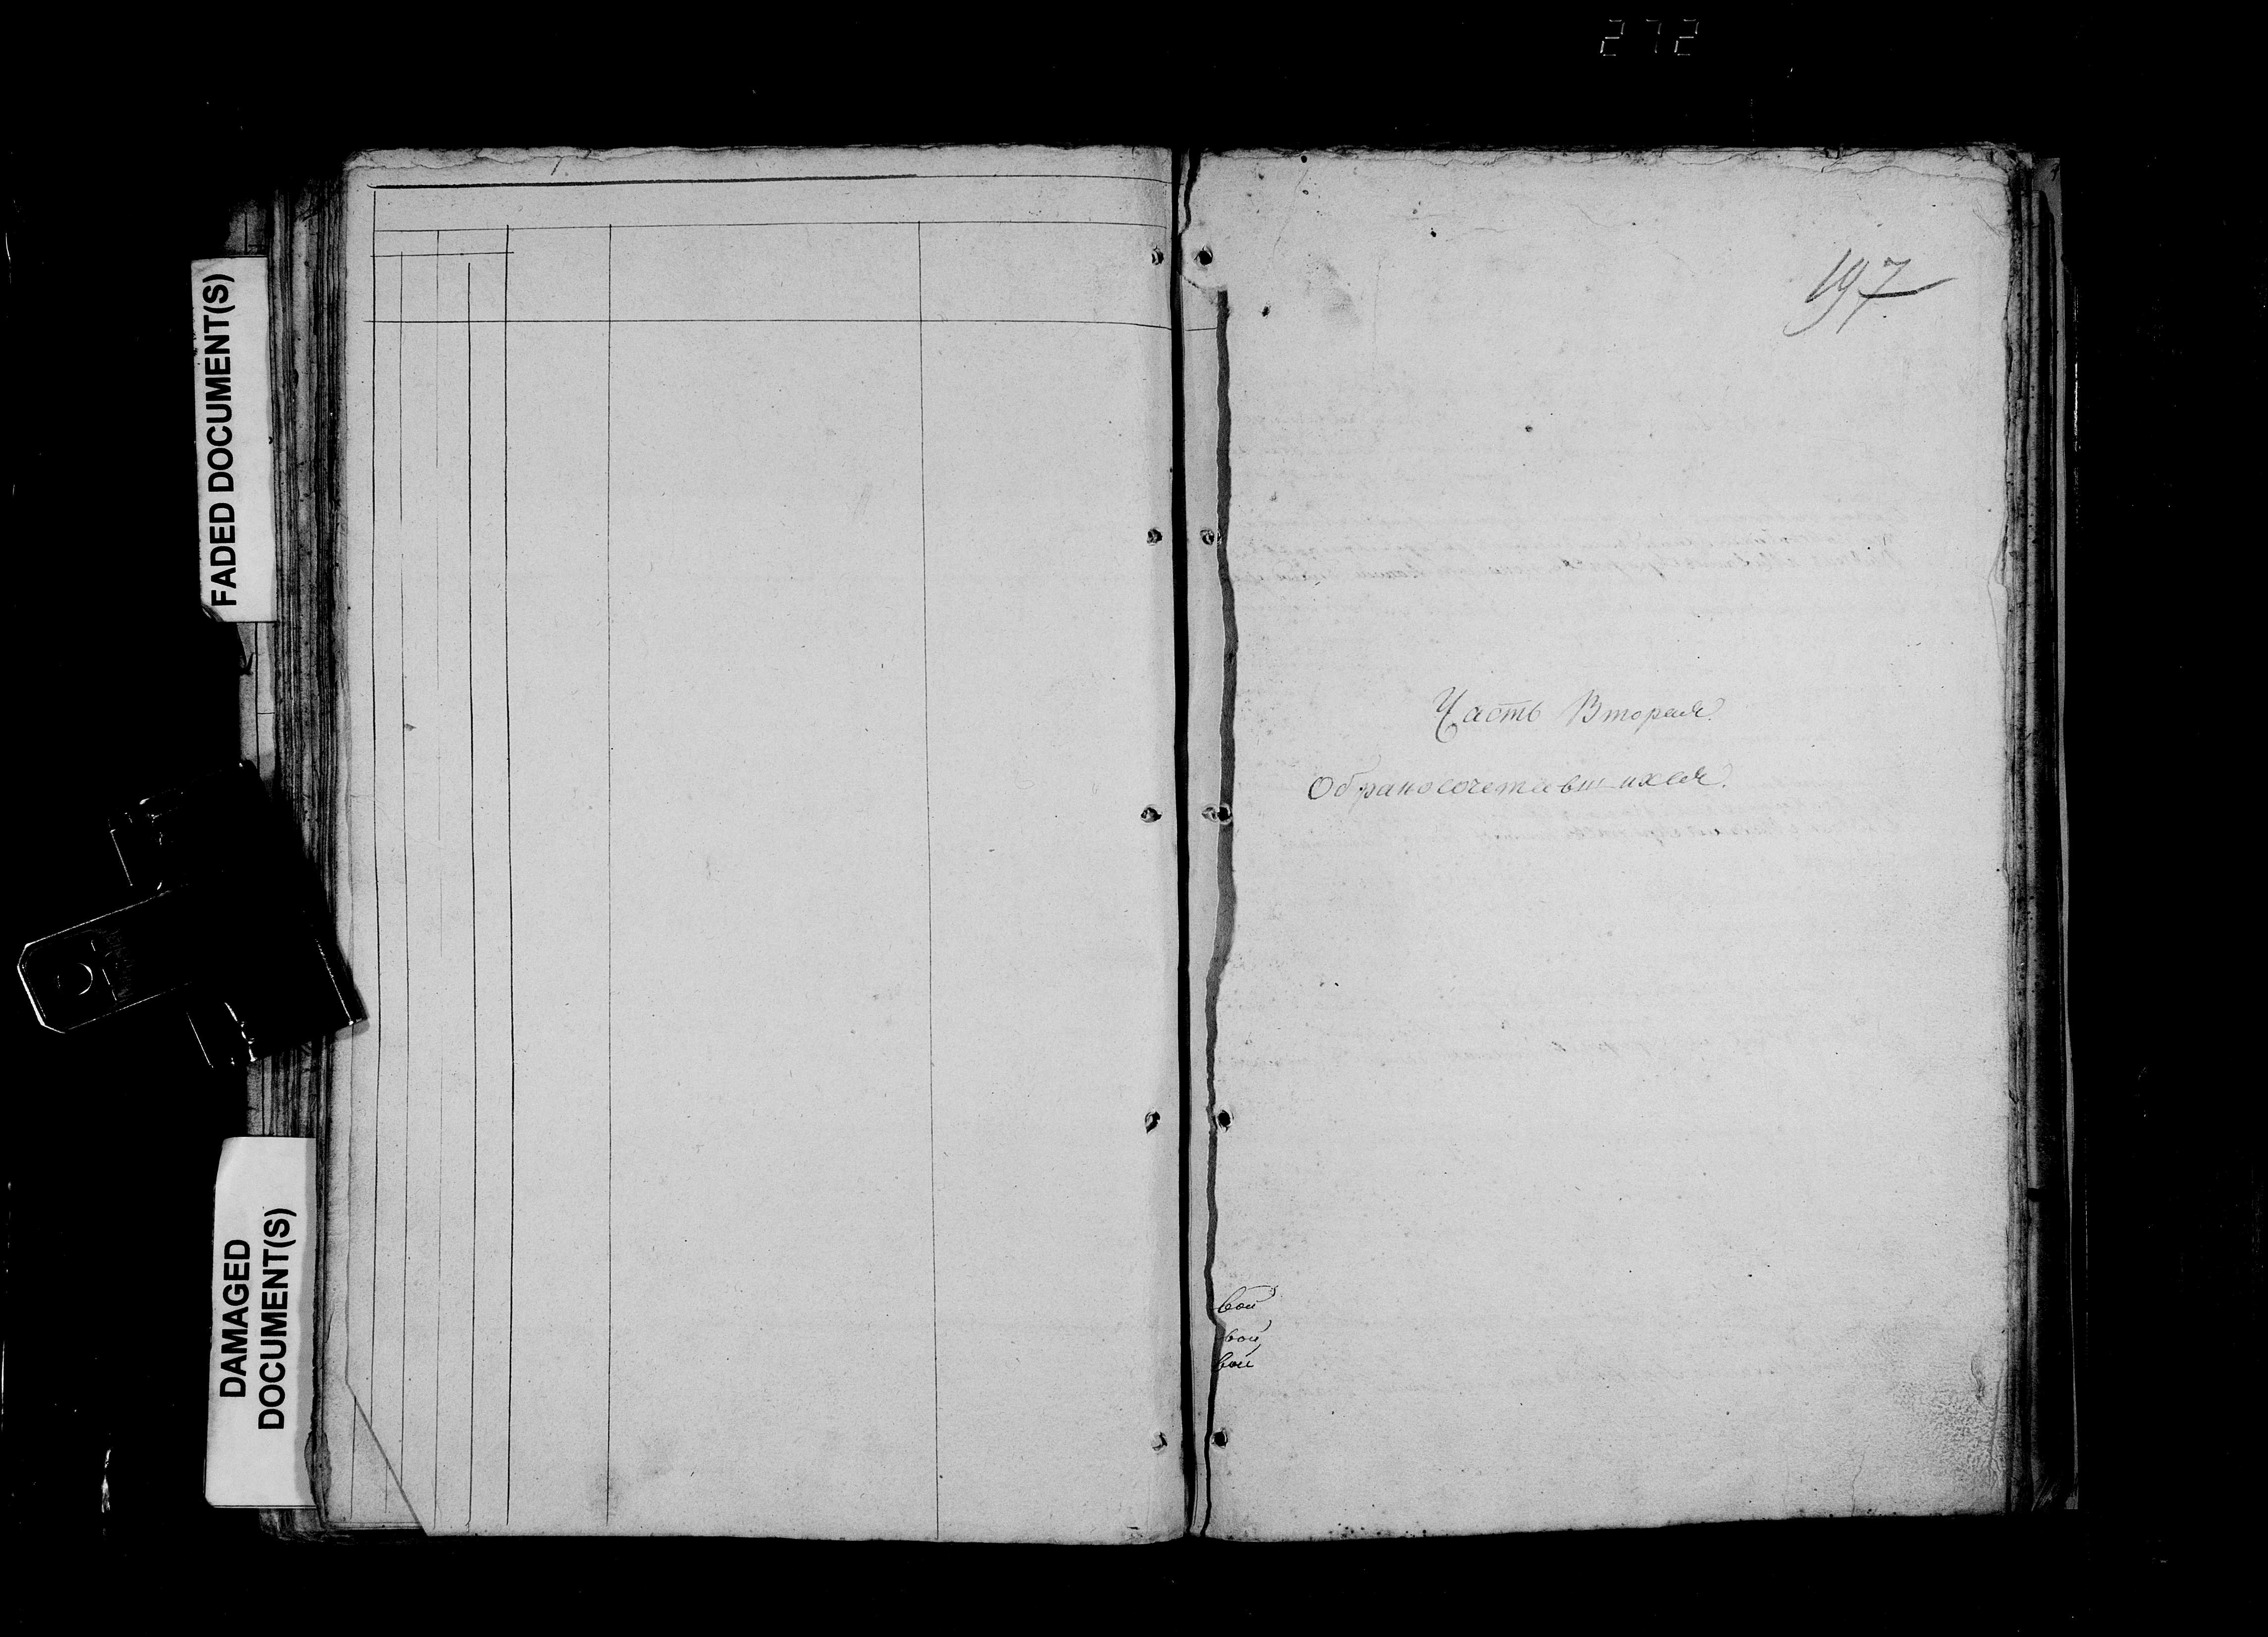 272
FADED DOCUMENT(S)
197
Часть Вторая.
О бракосочетавшихся.
вои
вои
вои
DAMAGED
DOCUMENT(S)